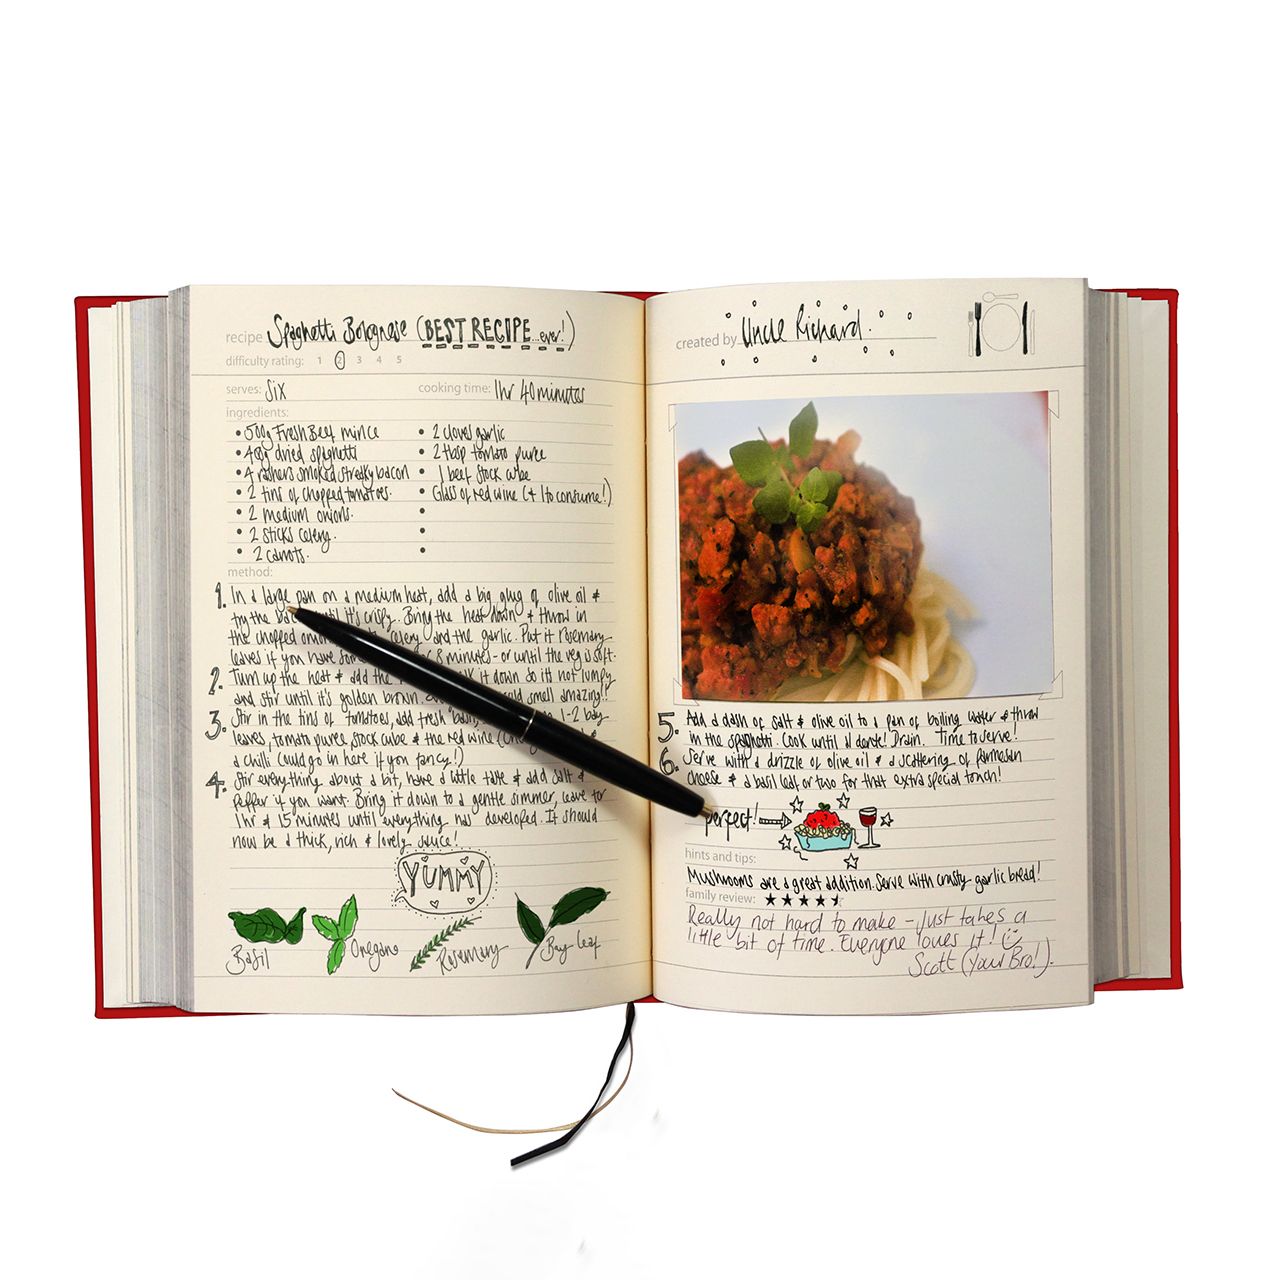 recipe Spaghetti Bolognese (BEST RECIPE...ever!)
difficulty rating: 1 2 3 4 5
serves: Six
cooking time: 1hr 40 minutes
ingredients:
• 500g Fresh Beef mince
• dried spaghetti
• 4 rashers smoked streaky bacon
• 2 tins of chopped tomatoes.
• 2 medium onions.
• 2 sticks celery.
• 2 carrots.
• 2 cloves garlic
• 2 tbsp tomato puree
• 1 beef stock cube
• Glass of red wine (+ 1 to consume!)
•
•
•
method:
1. In a large pan on a medium heat, add a big glug of olive oil &
fry the until it's crispy. Bring the heat down & throw in
the chopped celery and the garlic. Put it rosemary
leaves if you have 8 minutes - or until the veg is soft.
2. Turn up the heat & add the it down so it's not lumpy
and stir until it's golden brown. smell amazing!!
3. Stir in the tins of tomatoes, add fresh basil, 1-2 bay
leaves, tomato puree, stock cube & the red wine
a chilli could go in here if you fancy!)
4. Stir everything about a bit, have a little taste & add salt &
Pepper if you want. Bring it down to a gentle simmer, leave for
1hr & 15 minutes until everything has developed. It should
now be a thick, rich & lovely sauce!
YUMMY
Basil
Oregano
Rosemary
Bay Leaf
created by Uncle Richard.
5. Add a dash of salt & olive oil to a pan of boiling water & throw
in the spaghetti. Cook until al dente! Drain. Time to serve!
6. Serve with a drizzle of olive oil & a scattering of Parmesan
cheese & a basil leaf or two for that extra special touch!
perfect!
hints and tips:
Mushrooms are a great addition. Serve with crusty garlic bread!
family review: ★★★★
Really not hard to make - just takes a
little bit of time. Everyone loves it!
Scott (Your Bro!).